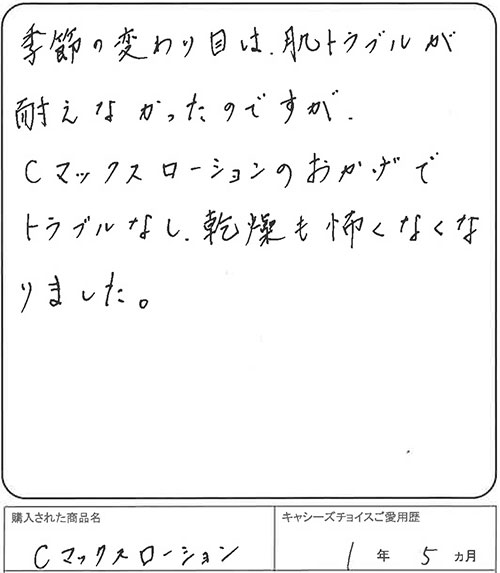 季節の変わり目は、肌トラブルが
耐えなかったのですが、
Cマックスローションのおかげで
トラブルなし、乾燥も怖くなくな
りました。
購入された商品名
キャシーズチョイスご愛用歴
Cマックスローション
1年5ヵ月